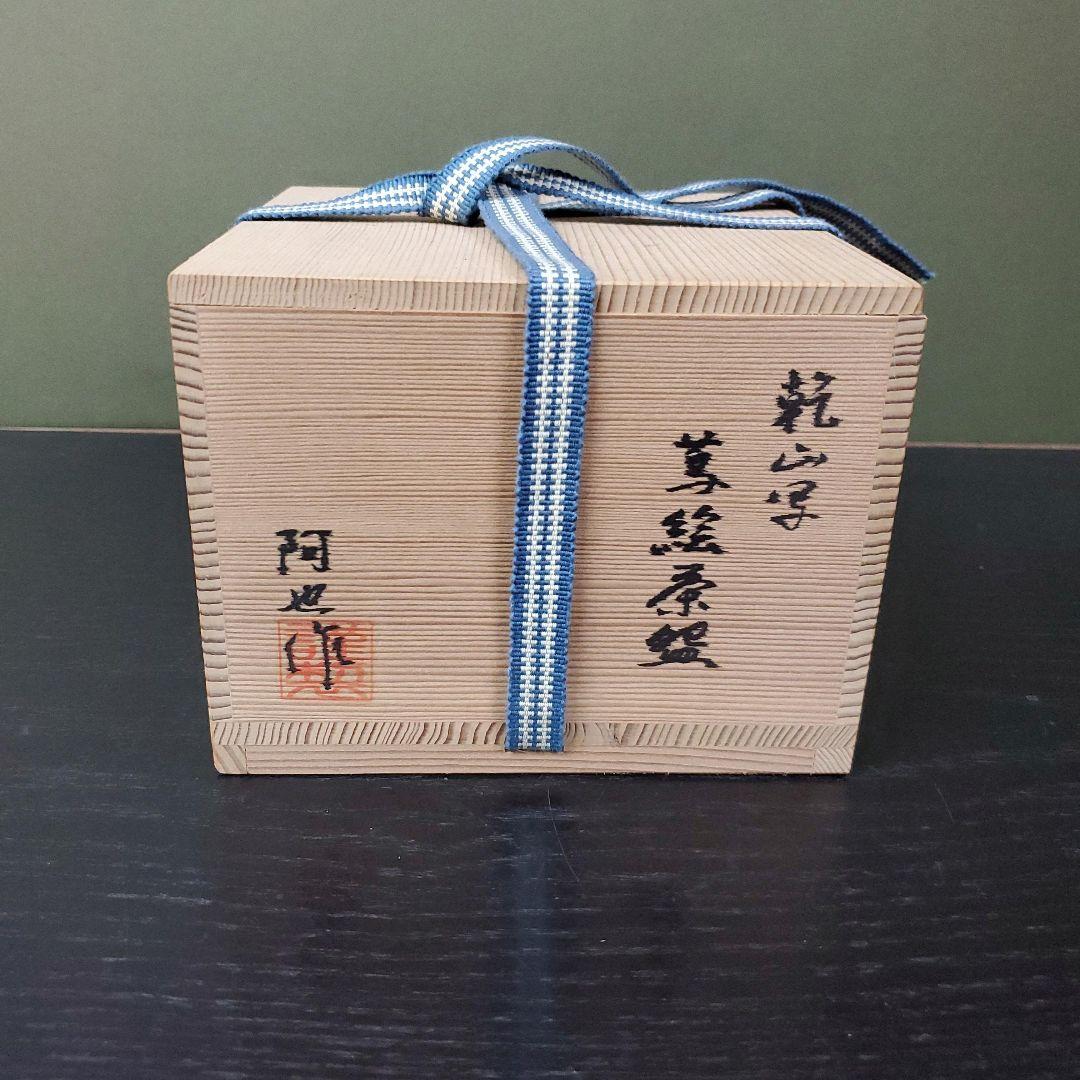 乾山写
絵茶盌
阿也作